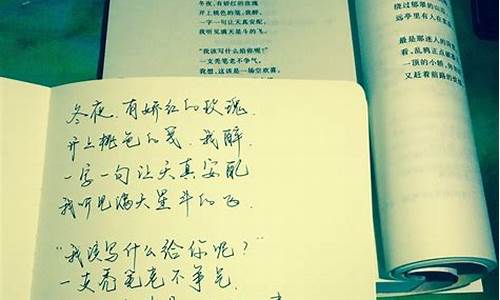 冬夜,有娇红的玫瑰
开上桃色的笺,我醉,
一字一句让天真安配,
我听见满天星斗的飞。
"我该写什么给你呢?"
一支秃笔老不争气,
我想,这该是一场空欢喜,
绕过郁翠的山
远亭里有人在
最是那迷人的
看,乱鸦正点
一顶的小轿,
又赶着前路的
冬夜,有娇红的玫瑰,
开上桃色的笺,我醉,
一字一句让天真安配
我听见满天星斗的飞,
"我该写什么给你呢?"
一支秃笔老不争气,